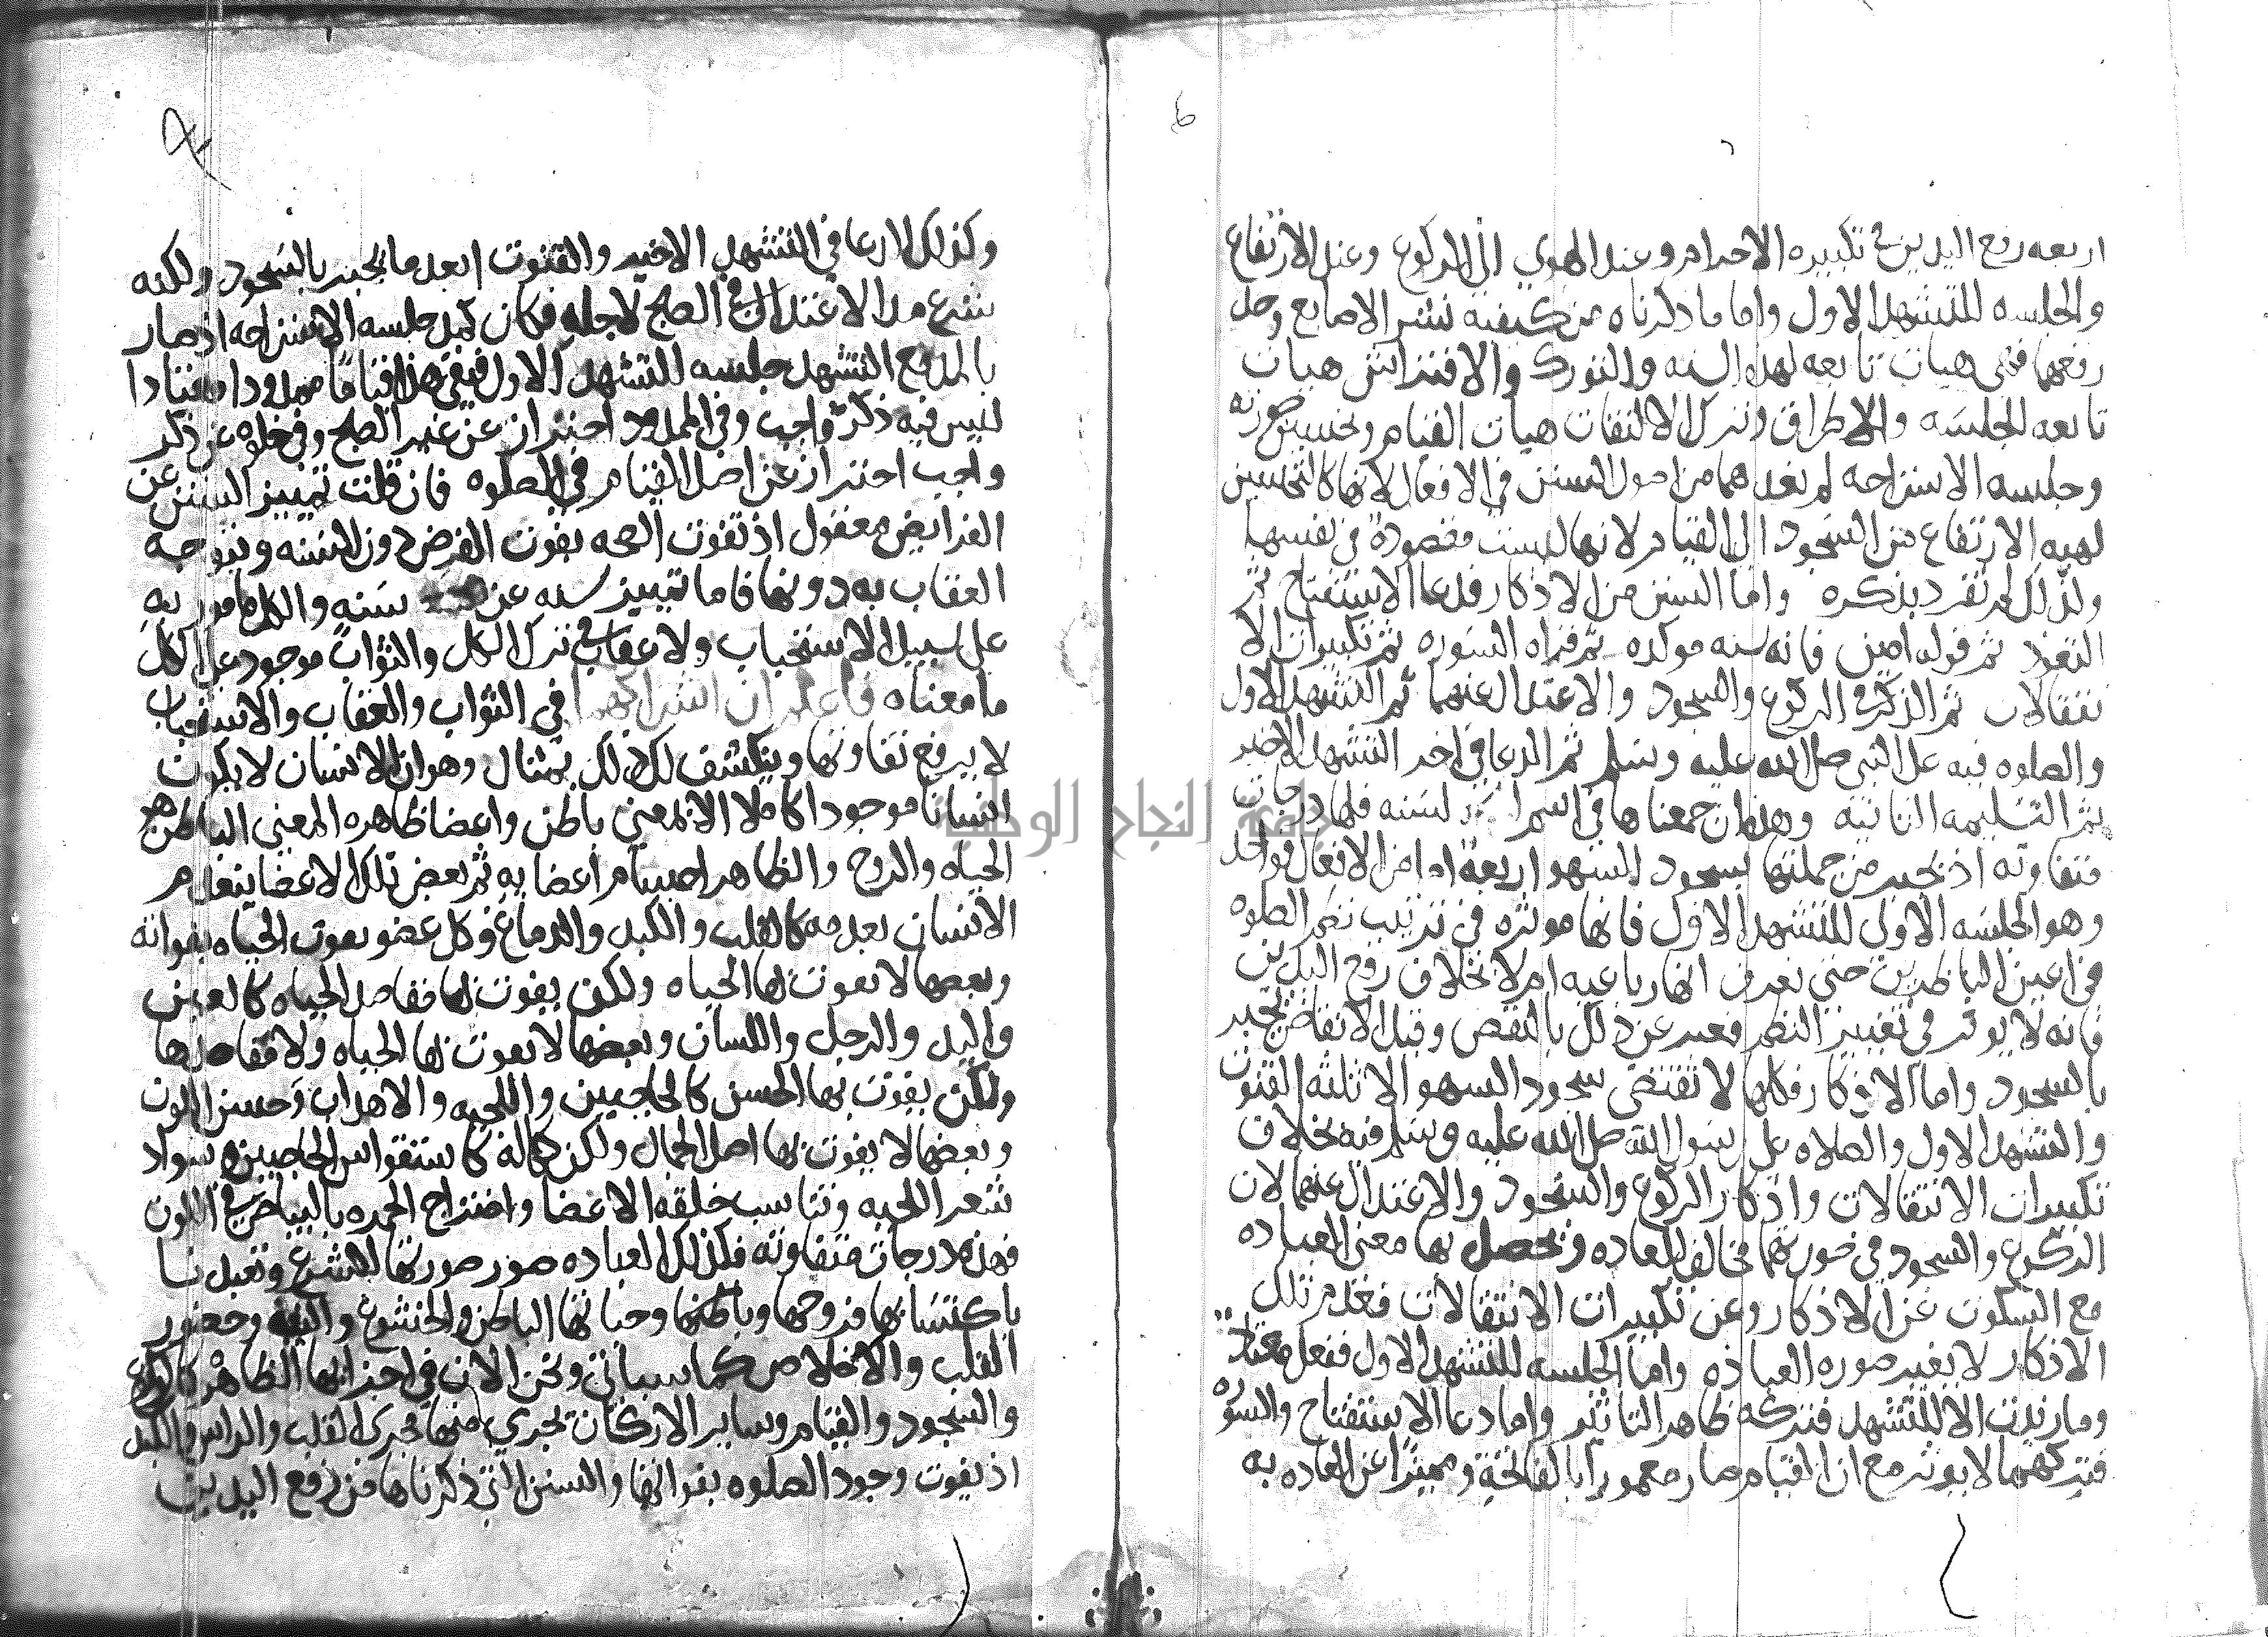 اربعه رفع اليدين في تكبيره الاحرام وعند الهوي الى الركوع وعند الارتفاع
والجلسه للتشهد الاول واما ما ذكرناه من كيفيه نشر الاصابع وحد
رفعها فهي هيات تابعه لهذه السنه والتورك والافتراش هيات
تابعه للجلسه والاطراق وترك الالتفات هيات القيام وتحسين صورته
وجلسه الاستراحه لم نعدهما من اصول السنن في الافعال لانها كالتحسين
لهيه الارتفاع من السجود الى القيام لانها ليست مقصودة في نفسها
ولذلك لم تفرد بذكره واما السنن من الاذكار فدعا الاستفتاح ثم
التعوذ ثم قوله امين فانه سنه موكده ثم قراه السوره ثم تكبيرات الا
نتقالات ثم الذكر في الركوع والسجود والاعتدال عنهما ثم التشهد الاول
والصلوه فيه على النبي صلى الله عليه وسلم ثم الدعا في اخر التشهد الاخير
ثم التسليمه الثانيه وهذه ان جمعناها في اسم السنه فلها درجات
متفاوته اذ تجبر من جملتها بسجود السهو اربعة اما من الافعال فواحد
وهو الجلسه الاولى للتشهد الاول فانها موثره في ترتيب نظم الصلوه
في اعين الناظرين حتى نعرف انها رباعيه ام لا بخلاف رفع اليدين
فانه لا يوثر في تغيير النظم فعبر عن ذلك بالنقص وقيل الابعاض تجبر
بالسجود واما الاذكار فكلها لا تقتضي سجود السهو الا ثلثه القنوت
والتشهد الاول والصلاه على رسول الله صلى الله عليه وسلم فيه بخلاف
تكبيرات الانتقالات واذكار الركوع والسجود والاعتدال عنهما لان
الركوع والسجود في صورتهما مخالف للعاده وتحصل بها معنى العباده
مع السكوت عن الاذكار وعن تكبيرات الانتقالات فعدم تلك
الاذكار لا يغير صوره العباده واما الجلسه للتشهد الاول ففعل معتاد
وما زيدت الا للتشهد فتركه ظاهر التاثير واما دعا الاستفتاح والسوره
فتركهما لا يوثر مع ان القيام صار معمورا بالفاتحة ومميزا عن العاده به
وكذلك الدعا في التشهد الاخير والقنوت ابعد ما يجبر بالسجود ولكنه
شرع مد الاعتدال في الصبح لاجله فكان كمد جلسه الاستراحه اذ صار
بالمد مع التشهد جلسه للتشهد الاول فبقي هذا قياما ممدودا معتادا
ليس فيه ذكر واجب وفي الممدود احتراز عن غير الصبح وفي خلوه عن ذكر
واجب احتراز عن اصل القيام في الصلوه فان قلت تمييز السنن عن
الفرايض معقول اذ تفوت الصحه بفوت الفرض دون السنه ويتوجه
العقاب به دونها فاما تمييز سنه عن سنه والكل مامور به
على سبيل الاستحباب ولا عقاب في ترك الكل والثواب موجود على الكل
ما معناه فاعلم ان اشتراكهما في الثواب والعقاب والاستحباب
لا يرفع تفاوتها وينكشف لك ذلك بمثال وهو ان الانسان لا يكون
انسانا موجودا كاملا الا بمعنى باطن واعضا ظاهره المعنى الباطن هو
الحياه والروح والظاهر اجسام اعضايه ثم بعض تلك الاعضا ينعدم
الانسان بعدمه كالقلب والكبد والدماغ وكل عضو يفوت الحياه بفواته
وبعضها لا تفوت بها الحياه ولكن يفوت بها مقاصد الحياه كالعين
واليد والرجل واللسان وبعضها لا يفوت بها الحياه ولا مقاصدها
ولكن يفوت بها الحسن كالحاجبين واللحيه والاهداب وحسن اللون
وبعضها لا يفوت بها اصل الجمال ولكن كماله كاستقواس الحاجبين وسواد
شعر اللحيه وتناسب خلقه الاعضا وامتزاج الحمره بالبياض في اللون
فهذه درجات متفاوته فكذلك العباده صور صورتها الشرع وتعبدنا
باكتسابها فروحها وباطنها وحياتها الباطن والخشوع والنيه وحضور
القلب والاخلاص كما سياتي ونحن الان في اجزايها الظاهره كالركوع
والسجود والقيام وساير الاركان تجري منها مجرى القلب والراس والكبد
اذ يفوت وجود الصلوه بفواتها والسنن التي ذكرناها من رفع اليدين
جامعة النجاح الوطنية